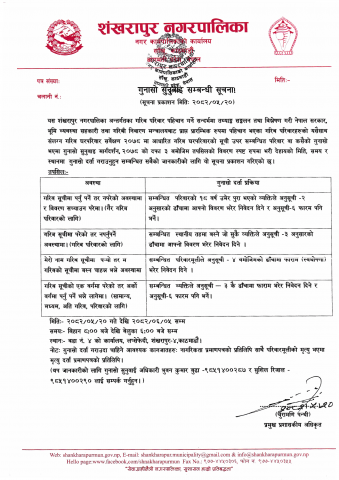 शंखरापुर नगरपालिका
नगर कार्यपालिकाको कार्यालय
पत्र संख्याः
मितिः-
चलानी नं.:
गुनासो सुनुवाई सम्बन्धी सूचना!
(सूचना प्रकाशन मितिः २०८२/०५/२०)
यस शंखरापुर नगरपालिका अन्तर्गतका गरिब परिवार पहिचान गर्ने सन्दर्भमा तथ्याङ्क सङ्कलन तथा विश्लेषण गरी नेपाल सरकार,
भूमि व्यवस्था सहकारी तथा गरिबी निवारण मन्त्रालयबाट प्राप्त प्रारम्भिक रुपमा पहिचान भएका गरिब परिवारहरुको
संलग्न गरिब घरपरिवार सर्वेक्षण २०७८ मा आधारित गरिब घरपरिवारको सूची उपर सम्बन्धित परिवार वा कसैको गुनासो
भएमा गुनासो सुनुवाई कार्यदिशा, २०८१ को दफा ३ बमोजिम तपसिलको विवरण स्पष्ट रुपमा भरी देहायको मिति, समय र
स्थानमा गुनासो दर्ता गराउनुहुन सम्बन्धित सबैको जानकारीको लागि यो सूचना प्रकाशन गरिएको छ।
तपसिलः-
अवस्था
गुनासो दर्ता प्रक्रिया
गरिब सूचीमा पर्नु पर्ने तर नपरेको अवस्थामा
र विवरण सच्याउन परेमा।(गैर गरिब
परिवारको लागि)
सम्बन्धित परिवारको १८ वर्ष उमेर पुरा भएको व्यक्तिले अनुसूची -२
अनुसारको ढाँचामा आफ्नो विवरण भरेर निवेदन दिने र अनुसूची-६ फाराम पनि
भर्ने।
गरिब सूचीमा परेको तर नपर्नुपर्ने
अवस्थामा।(गरिब परिवारको लागि)
सम्बन्धित स्थानीय तहमा बस्ने जो सुकै व्यक्तिले अनुसूची -३ अनुसारको
ढाँचामा आफ्नो विवरण भरेर निवेदन दिने ।
मेरो नाम गरिब सूचीमा पऱ्यो तर म
गरिबको सूचीमा बस्न चाहन्न भन्ने अवस्थामा
सम्बन्धित परिवारमूलीले अनुसूची - ४ बमोजिमको ढाँचामा फाराम (स्वघोषणा)
भरेर निवेदन दिने ।
गरिब सूचीको एक वर्गमा परेको तर अर्को
वर्गमा पर्नु पर्ने भन्ने लागेमा। (सामान्य,
मध्यम, अति गरिब, परिवारको लागि)
सम्बन्धित व्यक्तिले अनुसूची – ३ कै ढाँचामा फाराम भरेर निवेदन दिने र
अनुसूची-६ फाराम पनि भर्ने।
मितिः- २०८२/०५/२० गते देखि २०८२/०६/०५ सम्म
समयः- बिहान ८:०० बजे देखि बेलुका ६:०० बजे सम्म
स्थानः- वडा नं. ४ को कार्यालय, लप्सेफेदी, शंखरापुर-४,काठमाडौं।
नोटः गुनासो दर्ता गराउदा चाहिने आवश्यक कागजातहरुः नागरिकता प्रमाणपत्रको प्रतिलिपि साथै परिवारमूलीको मृत्यु भएमा
मृत्यु दर्ता प्रमाणपत्रको प्रतिलिपि।
(थप जानकारीको लागि गुनासो सुनुवाई अधिकारी भुवन कुमार बुढा -९८५१४००२८७ र सुशिल रिजाल -
९८५१४००२९० लाई सम्पर्क गर्नुहुन।)
प्रमुख प्रशासकीय अधिकृत
Web: shankharapurmun.gov.np, E-mail: shankharapur.municipality@gmail.com & info@shankharapurmun.gov.np